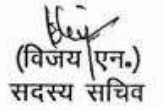 (विजय एन.)
सदस्य सचिव